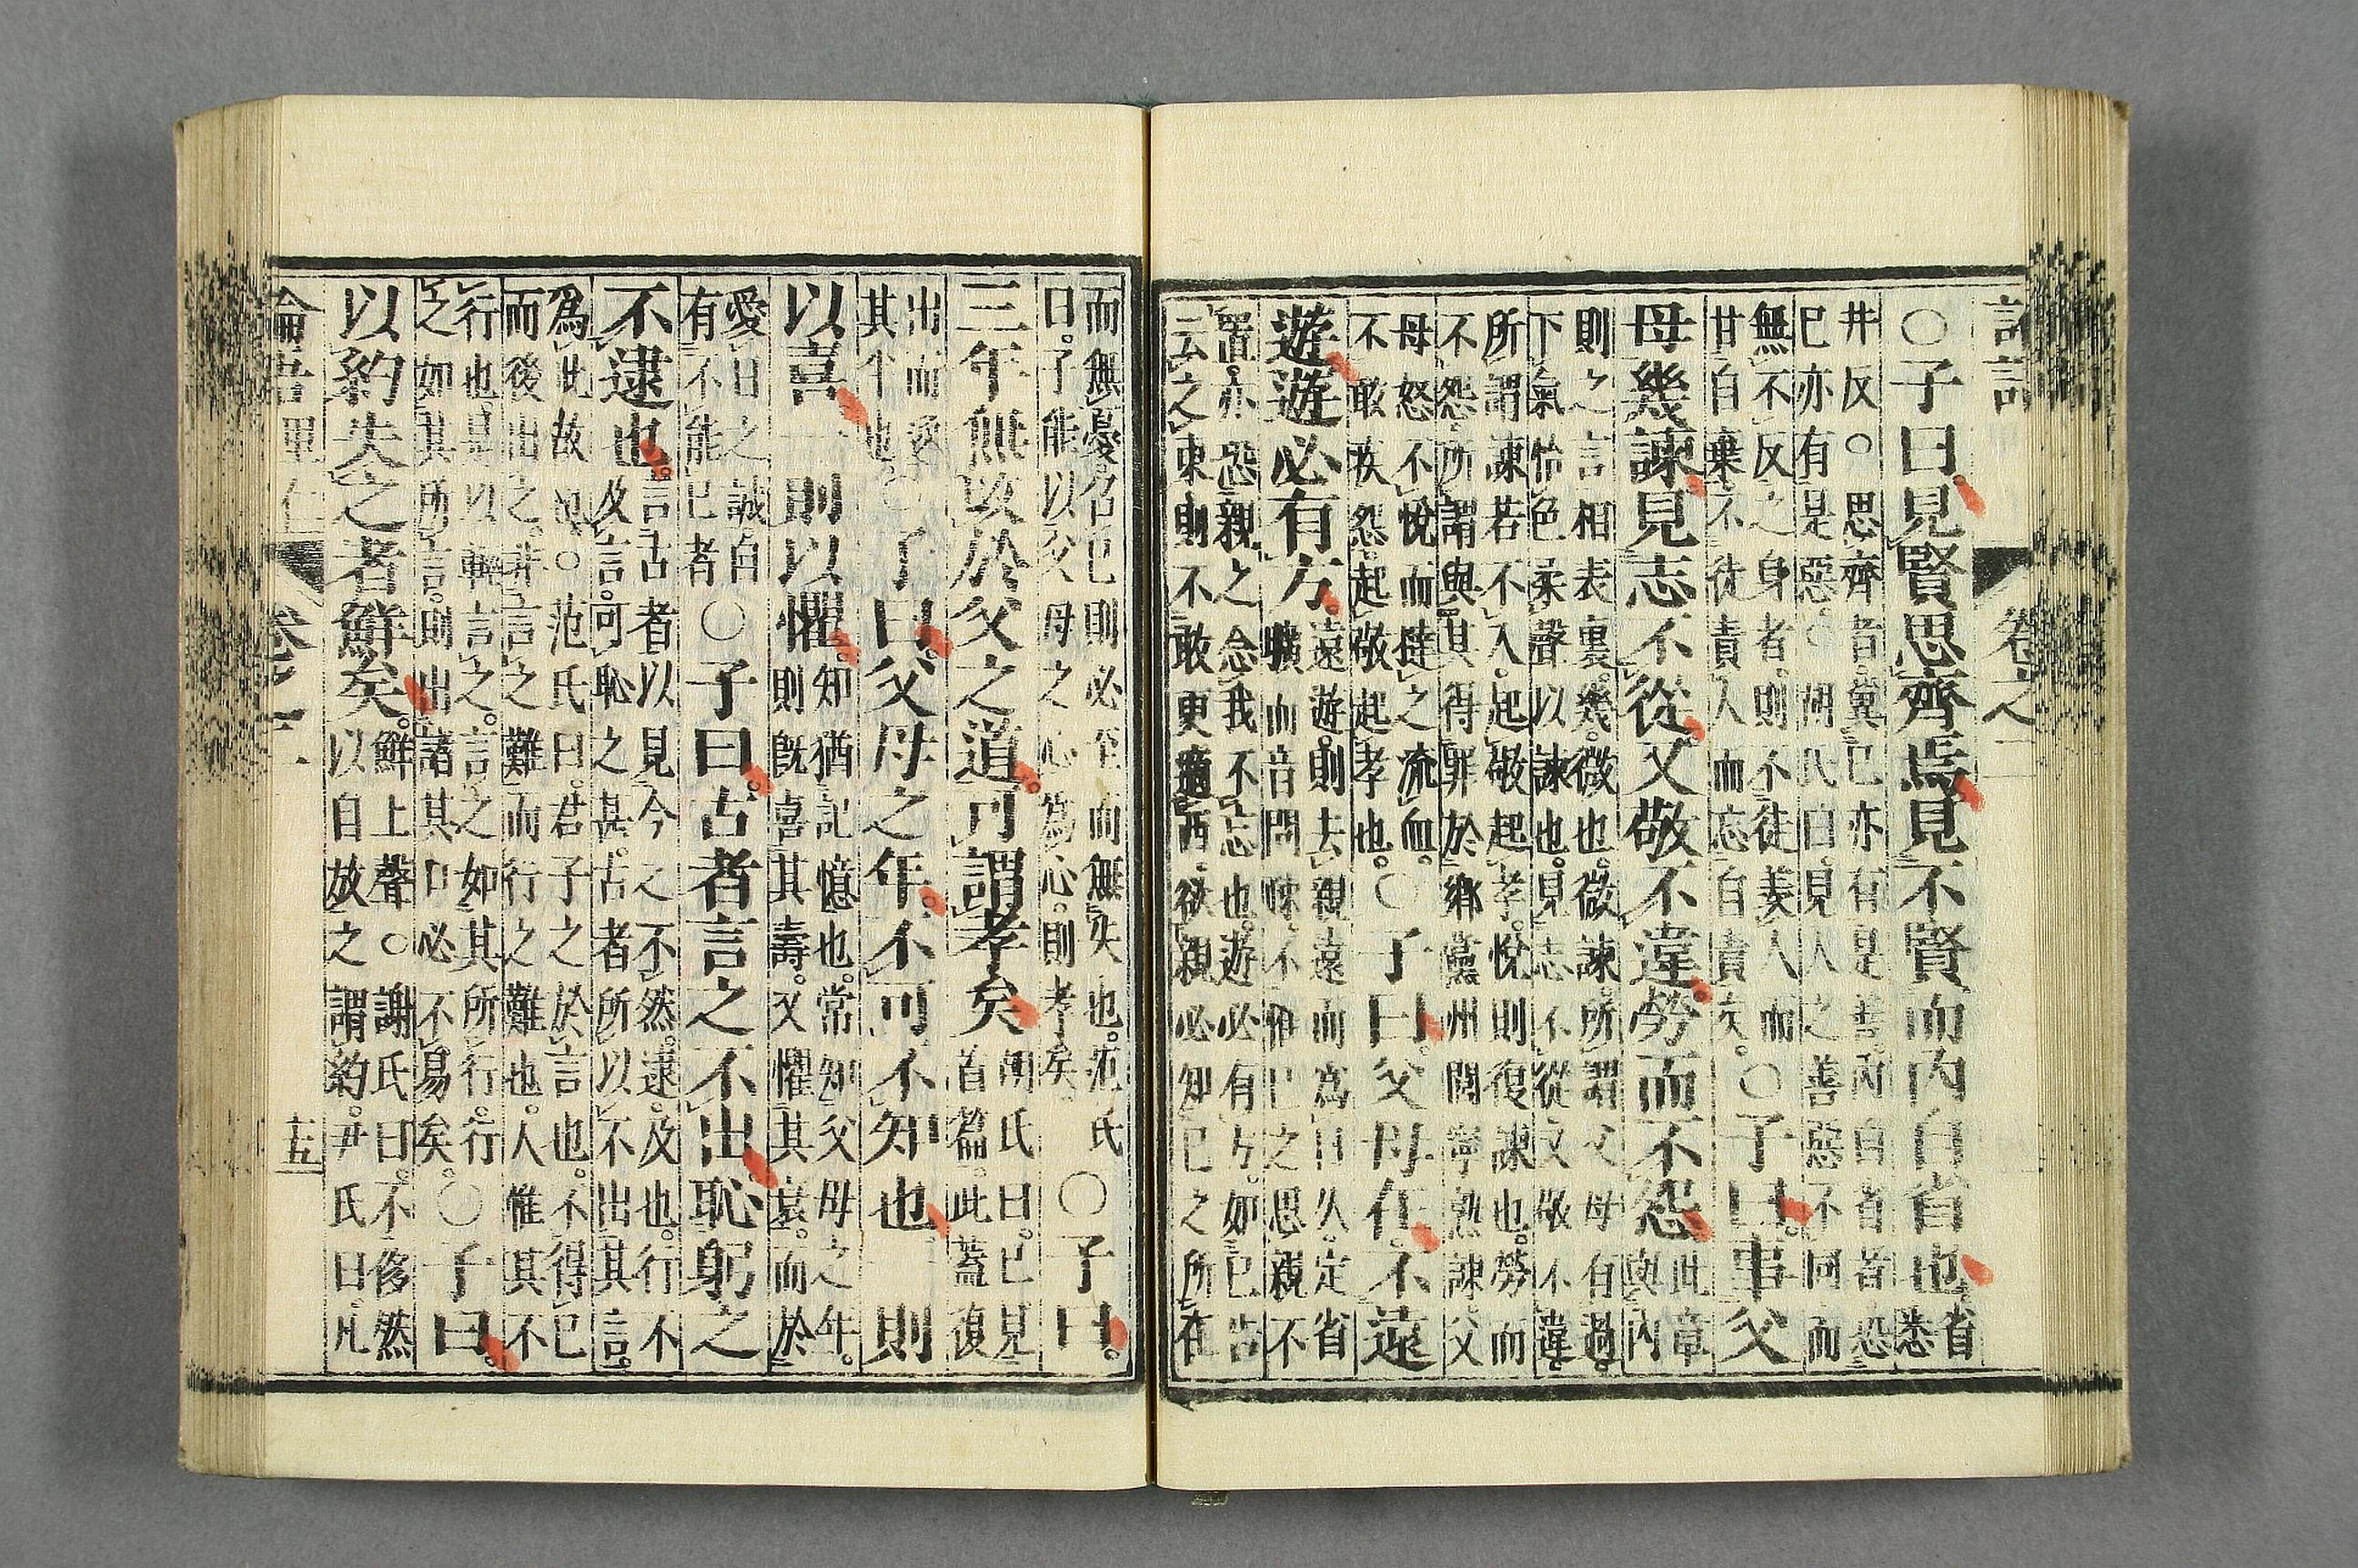 卷之二
○子曰。見賢思齊焉見不賢而內自省也省
悉
井反○思齊者冀已亦有是善內自省者恐
已亦有是惡○胡氏曰見人之善惡不同而
無不反之身者則不徒羨人而
甘自棄不徒責人而忘自責矣。○子曰。事父
母幾諫見志不從又敬不違勞而不怨此章
與內
則之言相表裏。幾。微也。微諫。所謂父母有過。
下氣怡色柔聲以諫也。見志不從又敬不違。
所謂諫若不入。起敬起孝。悅則復諫也。勞而
不怨。所謂與其得罪於鄉黨州閭寧熟諫父
母怒不悅而撻之流血。
不敢疾怨。起敬起孝也。○子曰。父母在。不遠
遊遊必有方。遠遊。則去親遠而爲日久。定省
曠而音問疎不惟已之思親不
置。亦恐親之念我不忘也。遊必有方。如已告
云之東則不敢更適西。欲親必知已之所在
而無憂。召已則必至而無失也。范氏
曰。子能以父母之心爲心。則孝矣。○子曰。
三年無改於父之道。可謂孝矣胡氏曰。已見
首篇。此蓋復
出而逸
其半也。○子曰。父母之年。不可不知也則
以喜一則以懼。知猶記憶也。常知父母之年。
則既喜其壽。又懼其衰。而於
愛日之誠自
有不能已者○子曰。古者言之不出恥躬之
不逮也。言古者以見今之不然。逮。及也。行不
及言。可恥之甚。古者所以不出其言。
爲此故也。○范氏曰。君子之於言也。不得已
而後出之。非言之難而行之難也。人惟其不
行也。是以輕言之。言之如其所行。行
之如其所言。則出諸其口必不易矣。○子曰。
以約失之者鮮矣。鮮上聲○謝氏曰。不侈然
以自放之謂約。尹氏曰凡
論語里仁 卷之二 十五